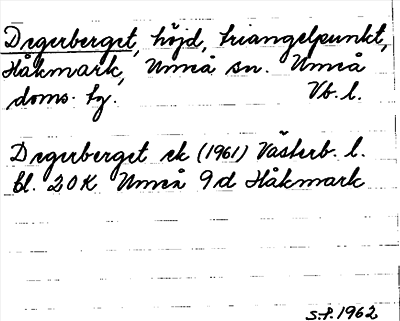 Degerberget, höjd, triangelpunkt,
Håkmark, Umeå sn. Umeå
doms. hg. Vb. l.
Degerberget ek (1961) Västerb. l.
bl. 20K Umeå 9d Håkmark
S.P. 1962